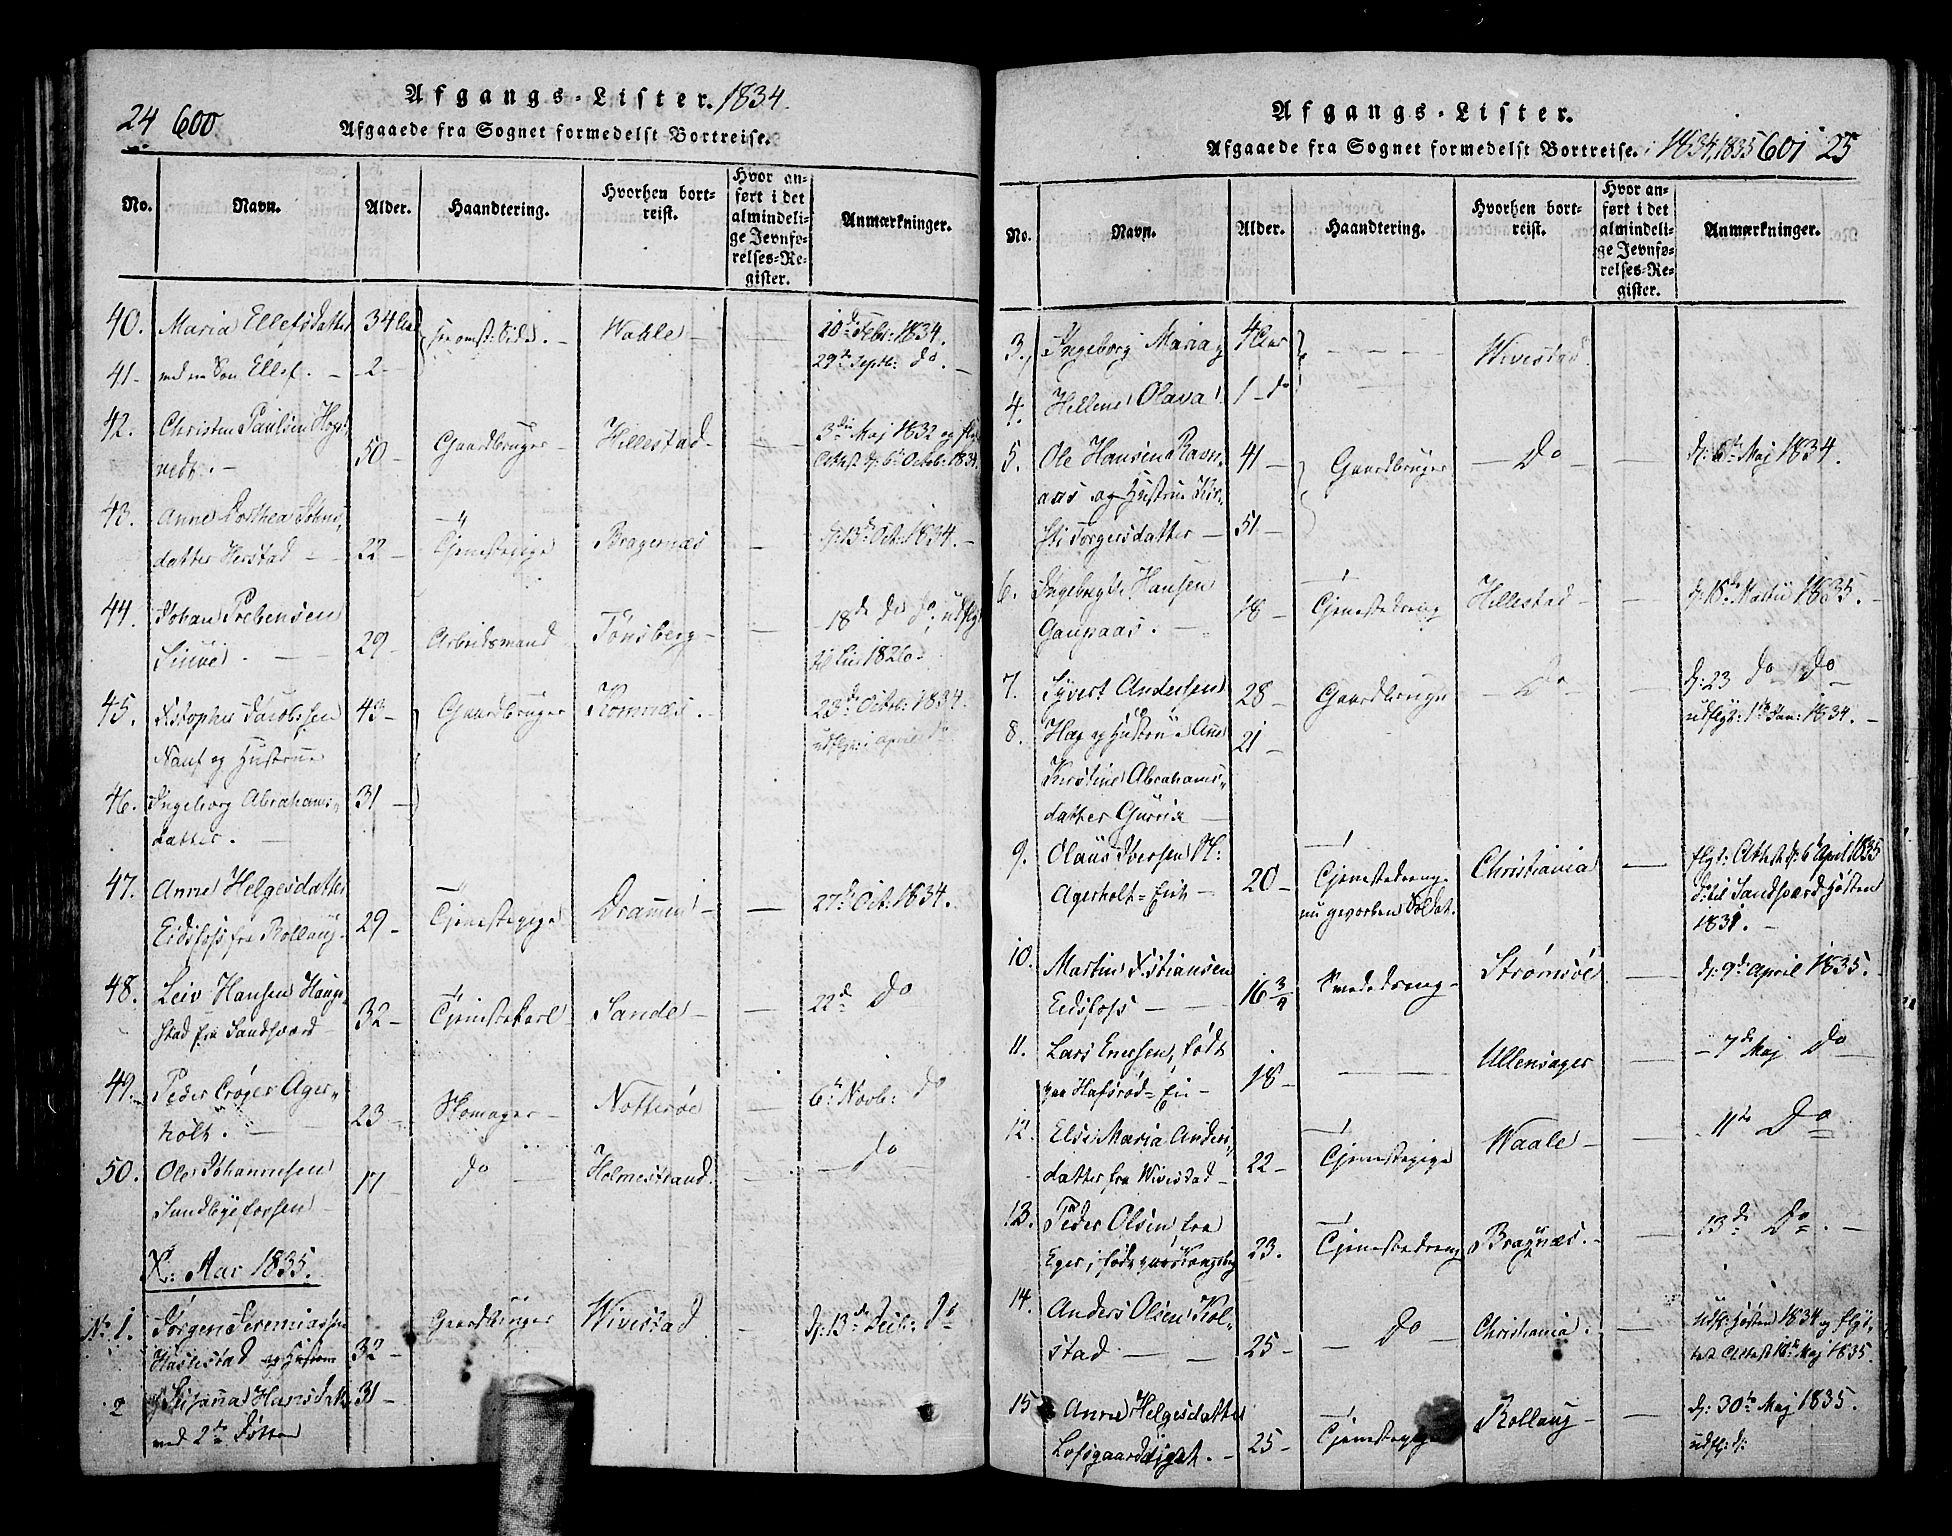 24 600
Afgangs-Lister. 1834.
Afgaaede fra Sognet formedelst Bortreise.
No. Navn. Alder. Haandtering. Hvorhen bortreist. Hvor anført i det almindelige Jevnførelses-Register. Anmærkninger.
40. Maria Ellefsdatter 34 Aar Wahle 10de Febr: 1834.
41 - med en Søn Ellef. - 2 - 29de Septbr: do. -
42. Christen Paulsen
vedt. - 50 - Gaardbruger Hillestad - 3die Maj 1832 og
Attest d: 6te Octob: 1834.
43. Anne Dorthea Johns
datter Herstad - 22 - Tjenestepige Bragernæs - d: 13de Oct: 1834. -
44. Johan Prebensen
29 - Arbeidsmand Tønsberg - - 18de do do,
1826.
45. Kristopher Jacobsen 43 - Gaardbruger Komnæs. - 23de Octob: 1834.
og Hustrue udflyt: i april do
46. Ingeborg Abrahams- 31 -
datter. -
47. Anne Helgesdatter
Eidsfoss fra Rollaug - 29 - Tjenestepige Dramen - - 27de Oct: 1834.
48. Leiv Hansen Haug-
stad fra Sandsværd - 32 - Tjenestekarl - Sande - - 22de Do
49. Peder Crøger Ager-
holt. - 23 - Skomager - Nøtterøe - 6te Novb: do
50. Ole Johannesen 17 - do Holmestrand. - do
Sundbyeforsen -
X: Aar 1835.
No 1. Jørgen Jeremiassen Gaardbruger Wivestad - d: 13de Do
Haslestad og Hustrue 32 -
2 Susanna Hansdatter 31 -
med 2de Døttre
Afgangs-Lister.
Afgaaede fra Sognet formedelst Bortreise. 1834, 1835 601 25
No. Navn. Alder. Haandtering. Hvorhen bortreist. Hvor anført i det almindelige Jevnførelses-Register. Anmærkninger.
3. Ingeborg Maria 4 Aar - - - - Wivestad.
4. Hellene Olava 1 - do
5. Ole Hansen Ravn- 41 - Gaardbruger - Do - - d: 8de Maj 1834.
aas og Hustrue Kir-
sti Torgersdatter - 51 -
6. Ingebregt Hansen
Gaupaas. - 18 - Tjenestedreng Hillestad - - d: 18de Martii 1835. -
7. Syvert Andersen 28 - Gaardbruger - Do - - d: 23 do do
8. Hag og Hustrue Anne 21 - udflyt: 1te Jan: 1834. -
Kirstine Abrahams-
datter -
9. Olaus Iversen
Agerholt-Eie - 20 - Tjenestedreng, Christiania - flyt: Attest d: 6te April 1835
nu gevorben Soldat. d: til Sandsværd Høsten
1831. -
10. Martin Kristiansen
Eidsfoss - 16 3/4 Smededreng - Strømsøe - d: 9de April 1835.
11. Lars Enersen, født
paa Hafsrød-Eie - 18 - - Ullensager - - 7de Maj Do
12. Else Maria Anders
datter fra Wivestad - 22 - Tjenestepige Waale - - 11te Do
13. Peder Olsen fra
Eger, født paa Kongsberg 23. Tjenestedreng Bragnæs. - - 13de Do. -
14. Anders Olsen Kol-
stad - - 25 - - Do - Christiania. - udfl: Høsten 1834 og flyt-
tet Attest 18de Maj 1835.
15 Anne Helgesdatter
Lofsgaardeiget. - 25 - Tjenestepige Rollaug - - d: 30te Maj 1835.
udfl: d: